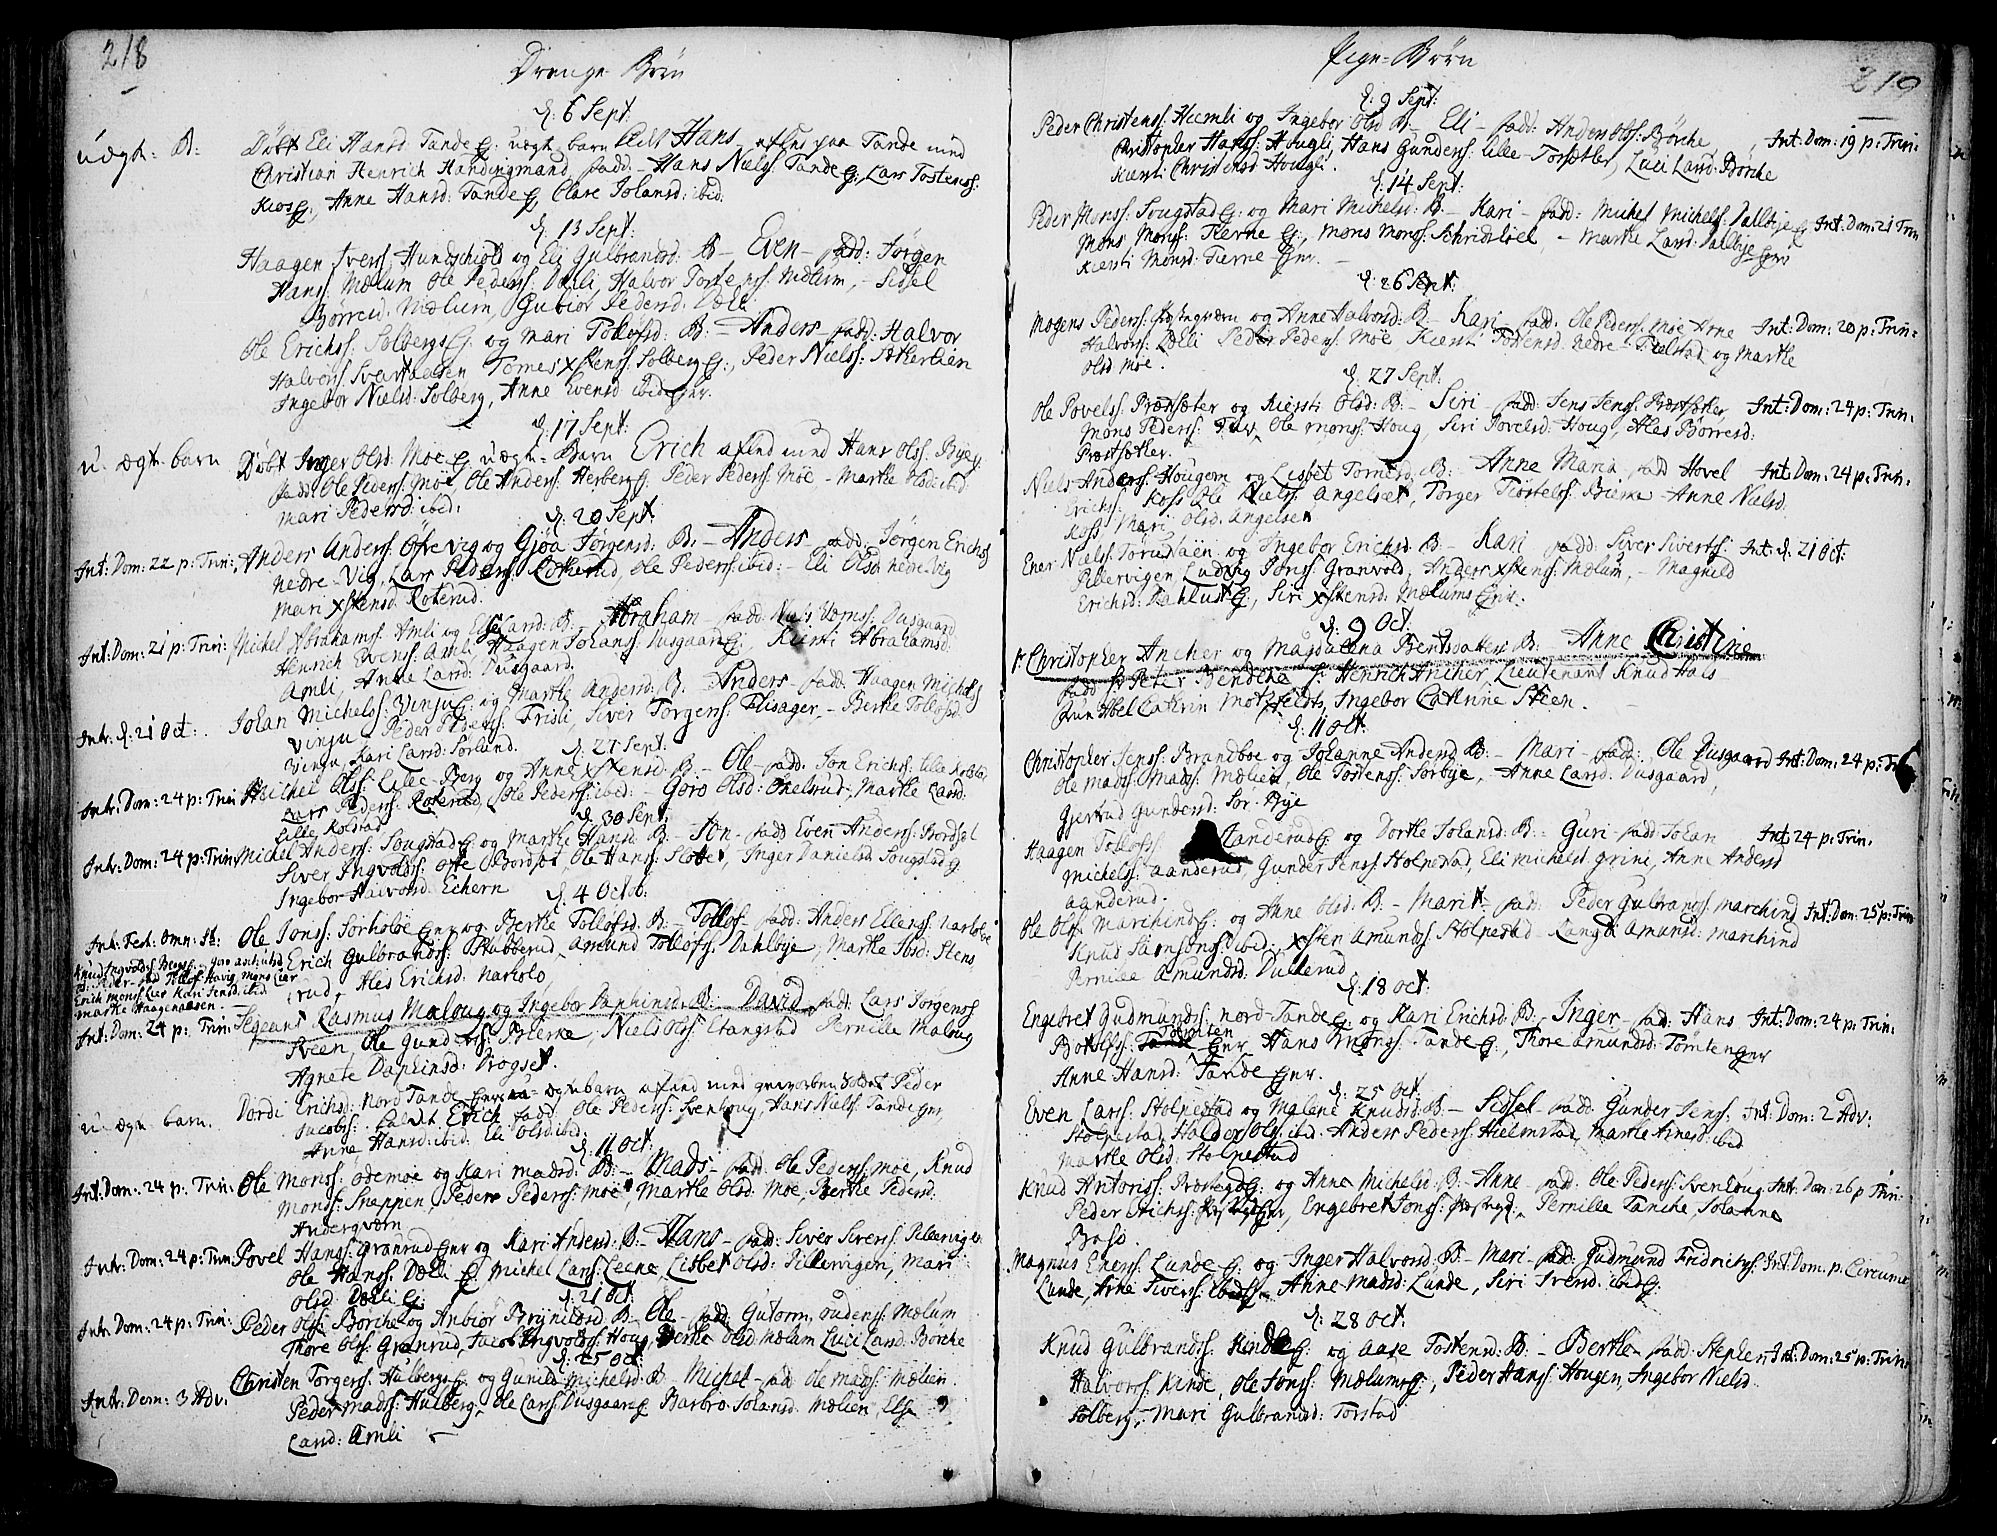 218
Drenge-Børn
d: 6 Sept:
uægt: B: Døbt Eli Hansd: Tande E: uægt barn kaldt Hans aflet paa Tande med
Christian Henrich Handingmand, fadd: Hans Niels: Tande E:, Lars Tostenss:
Kios E:, Anne Hansd: Tande E, Clare Johansd: ibid:
d: 13 Sept:
Haagen Iverss: Hundschiold og Eli Gulbrandsd: B – Even – fadd: Jørgen
Hanss: Mælum Ole Pederss: Dæli, Halvor Tostenss: Mælum, – Sidsel
Børresd: Mælum, Gubiør Pedersd: Dæli
Ole Erichss: Solbergs E: og Mari Tollofsd: B: – Anders – fadd: Halvor
Halvorss: Svartaasen Tomes Xstenss: Solberg E:, Peder Nielss: Sætherbien
Ingebor Nielsd: Solberg, Anne Evensd ibid
d: 17 Sept:
u: ægt: barn Døbt Inger Olsd: Moe E: uægt: Barn Erich aflet med Hans Olss: Bye
fadd: Ole Pederss: Moe, Ole Anderss: Herberg E: Peder Pederss: Moe – Marthe Olsd: ibid
Mari Pedersd: ibid:
d: 20 Sept:
Int: Dom: 22 p: Trin: Anders Anderss: Øfre Vig og Gjøa Jørgensd: B: – Anders – fadd: Jørgen Erichss
nedre-Vig, Lars Pederss: Roterud, Ole Pederss: ibid: – Eli Olsd nedre Vig
Mari Xstensd: Roterud.
Int: Dom: 21 p: Trin: Michel Abrahamss: Amli og Else Larsd: B – Abraham – fadd: Niels Dusgaard
Henrich Evenss: Amli Haagen Johanss: Dusgaard E:, Kiersti Abrahamsd:
Amli, Anne Larsd: Dusgaard.
Intr: d: 21 Oct: Johan Michelss: Vinju E: og Marthe Andersd: B: – Anders – fadd: Haagen Michelss
Vinju Peder Frisli, Siver Torgerss: Flisager, – Berthe Tollofsd:
Vinju, Kari Larsd: Sørlund.
d: 27 Sept:
Intr: Dom: 24 p: Trin Michel Olss: Lille-Berg og Anne Xstensd: B – Ole – fadd: Jon Erichss: Lille Kolstad
Lars Pederss: Roterud, Ole Pederss: ibid: – Goro Olsd: Økelrud, Marthe Larsd:
Lille Kolstad
d: 30 Sept:
Intr: Dom: 24 p: Trin Michel Anderss: Sougstad E: og Marthe Hansd: B – Jon – fadd Even Anderss: Bordset
Siver Ingvoldss: Øfre Bordset, Ole Hanss: Slotte, Inger Danielsd Sougstad E
Ingebor Halvorsd: Echern
d: 4 Octob:
Int: Fest: Omn: St: Ole Jonss: Sorholöe og Berthe Tollofsd: B – Tollof – fadd: Anders Ellenss: Narlobe
Erich Gulbrandss: Stubberud, Amund Tollofss: Dahlbye, Marthe Ibsd: Stens
rud, Ales Erichsd: Narlolo
Knud Ingvoldss Berg
Erich Monss Lier Kari Jensd: ibid
Marthe Haagenaasen.
Int: Dom: 24 p: Trin: Sergeant Rasmus Maloug og Ingebor Daphinsd: B: – David – fadd: Lars Jørgenss
Sveen, Ole Gunderss: Blerke, Niels Olss: Stangstad Pernille Maloug
Agnete Daphinsd: Krogset.
u: ægte barn. Dordi Erichsd: Nord Tande uægte barn aflet med Soldat Peder
Jacobss: kaldt Erich fadd: Ole Pederss: Svenhoug, Hans Nielss: Tande
Anne Hansd: ibid: Eli Olsd: ibid:
d: 11 Oct:
Int: Dom: 24 p: Trin: Ole Monss: Ødemoe og Kari Madsd: B: – Mads – fadd: Ole Pederss: Moe, Knud
Monss: Snappen, Peder Pederss: Moe, Marthe Olsd: Moe, Berthe Pedersd
Andergværn
Intr: Dom: 24 p: Trin: Povel Hanss: Granrud og Kari Andersd: B – Hans – fadd: Siver Siverss: Pellervigen
Ole Hanss: Dæli E, Michel Larss: Leene, Lisbet Olsd: Pillervigen, Mari
Olsd: Dæli E:
d: 21 Oct
Intr: Dom: 24 p: Trin: Peder Olss: Børche og Anbiør Brynildsd B – Ole – fadd: Gutorm Oudenss: Mælum
Thore Olss: Granrud, Jacob Ingvoldss: Houg, Berthe Olsd: Mælum Luci Larsd: Børche
d: 25 Oct:
Intr: Dom: 3 Adv. Christen Torgerss: Hulbergs E og Gunild Michelsd: B – Michel – fad Ole Madss: Mælien
Peder Madss: Hulberg, Ole Larss: Dusgaard Barbro Johansd: Mælien, Else
Larsd: Amli
219
Pige-Børn
d: 9 Sept:
Peder Christenss: Hæmli og Ingebor Olsd B – Eli – fadd: Anders Olss: Børche, Int: Dom: 19 p: Trin:
Christopher Hanss: Hougli, Hans Gunderss: Lille-Torsæther, Luci Larsd: Børche
Kiersti Christensd: Hougli.
d: 14 Sept:
Peder Monss: Sougstad E: og Mari Michelsd: B – Kari – fadd: Michel Michelss: Dallbye E Int: Dom: 21 Trin
Mons Monss: Tierne E:, Mons Monss: Schridshol – Marthe Larsd: Dallbye
Kiersti Monsd: Tierne
d: 26 Sept:
Mogens Pederss: og Anne Halvorsd: B – Kari – fadd: Ole Pederss: Moe Arne Int: Dom: 20 p: Trin:
Halvorss: Dæli Peder Pederss: Moe Kiersti Tostensd: nedre Fielstad og Marthe
Olsd Moe.
d: 27 Sept:
Ole Povelss: Præstsæter og Kiersti Olsd: B – Siri – fadd: Jens Jenss: Præstsæther, Int: Dom: 24 p: Trin.
Mons Pederss: Ole Monss: Houg, Siri Povelsd: Houg, Ales Børresd:
Præstsæther.
Niels Anderss: Hougem og Lisbet Tomesd: B – Anne Maria – fadd Hovel Int: Dom: 24 p: Trin:
Erichss: Koss Ole Nielss: Angelset, Torger Tiostelss: Bierke – Anne Nielsd
Koss Mari Olsd: Angelset
Ener Nielss: Torudsæen og Ingebor Erichsd: B – Kari – fadd: Siver Sivertss: Int: d: 21 Oct:
Pillervigen, Ludvig Jonss: Granvold, Anders Xstenss: Mælum, – Magnild
Erichsd: E, Siri Xstensd: Mælums.
d: 9 Oct:
Hr Christopher Ancher og Magdalena Bentsdatter B: Anne Christine
fadd Hr Peter Bendeke Hr Henrich Ancher, Lieutenant Knud Hals
Fru Abel Cathrin Motzfeldts, Ingebor Cathrine Steen.
d: 11 Oct:
Christopher Jenss: Brandboe og Johanne Andersd B: – Mari – fadd: Ole Dusgaard Int: Dom: 24 p: Trin
Ole Madss: Mælien, Ole Tostenss: Sørbye, – Anne Larsd: Dusgaard,
Gjertrud Gundersd: Sør-Bye
Haagen Tollofss: Aanderud E og Dorthe Johansd: B: – Guri – fadd: Johan Int 24 p: Trin.
Michelss: Aanderud, Gunder Jenss: Stolpestad, Eli Michelsd Grini, Anne Andersd
Aanderud.
Ole Olss: Marchind E: og Anne Olsd: B – Marit – fad: Peder Gulbrandss: Marchind Int: Dom: 25 p: Trin
Knud Samsonss ibid:, Xsten Amundss Stolpestad – Amundsd: Marchind
Pernille Amundsd: Dullerud
d: 18 Oct:
Engebret Gudmundss: Nord-Tande E: og Kari Erichsd: B – Inger – fad: Hans Int: Dom: 24 p: Trin:
Botolfss: Tomten Hans Monss: Tande E:, Thore Amundsd: Tomten
Anne Hansd: Tande
d: 25 Oct
Even Larss: Stolpestad og Malene Knudsd: B – Sidsel – fadd: Gunder Jenss: Int: Dom: 2 Adv:
Stolpestad, Haldor Olss: ibid: Anders Pederss: Hielmstad, Marthe Arnesd: ibid
Marthe Olsd: Stolpestad
Knud Antoniss: Præstegd E: og Anne Michelsd: B – Anne – fad: Ole Pederss: Svenhoug Int: Dom: 26 p Trin:
Peder Erichss: Præstegd, Engebret Jonss: Præstegd, Pernille Fanche, Johanne
Boss.
Magnus Enerss: Lunde E: og Inger Halvorsd: B – Mari – fad: Gudmund Fridrichss: Int Dom: p: Circume
Lunde, Arne Siverss: ibid – Anne Madsd: Lunde, Siri Iversd: ibid
d: 28 Oct:
Knud Gulbrandss: Kinde E: og Aase Tostensd: B – Berthe – fadd: Stephen Int: Dom: 25 p: Trin:
Halvorss: Kinde, Ole Jonss: Mælums, Peder Hanss: Hougen, Ingebor Nielsd
Solberg, Mari Gulbrandsd: Torstad